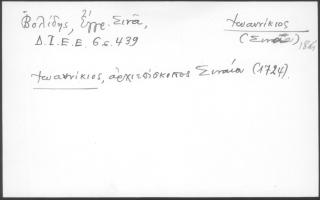 Βολίδης, Ἔγγρ. Σινᾶ,
Δ.Ι.Ε.Ε. 6 σ. 439
Ἰωαννίκιος
(Σινᾶ)
Ἰωαννίκιος, ἀρχιεπίσκοπος Σιναίου (1724).